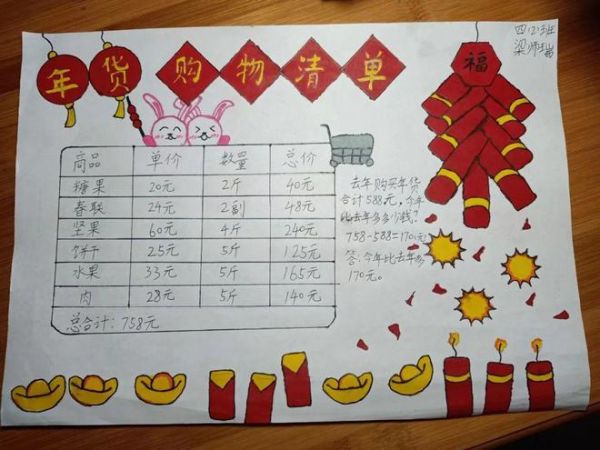 四(2)班
梁师瑞
年货购物清单
福
商品 单价 数量 总价
糖果 20元 2斤 40元
春联 24元 2副 48元
坚果 60元 4斤 240元
饼干 25元 5斤 125元
水果 33元 5斤 165元
肉 28元 5斤 140元
总合计：758元
去年购买年货
合计588元，今年
比去年多多少钱？
758-588=170(元)
答：今年比去年多
170元。